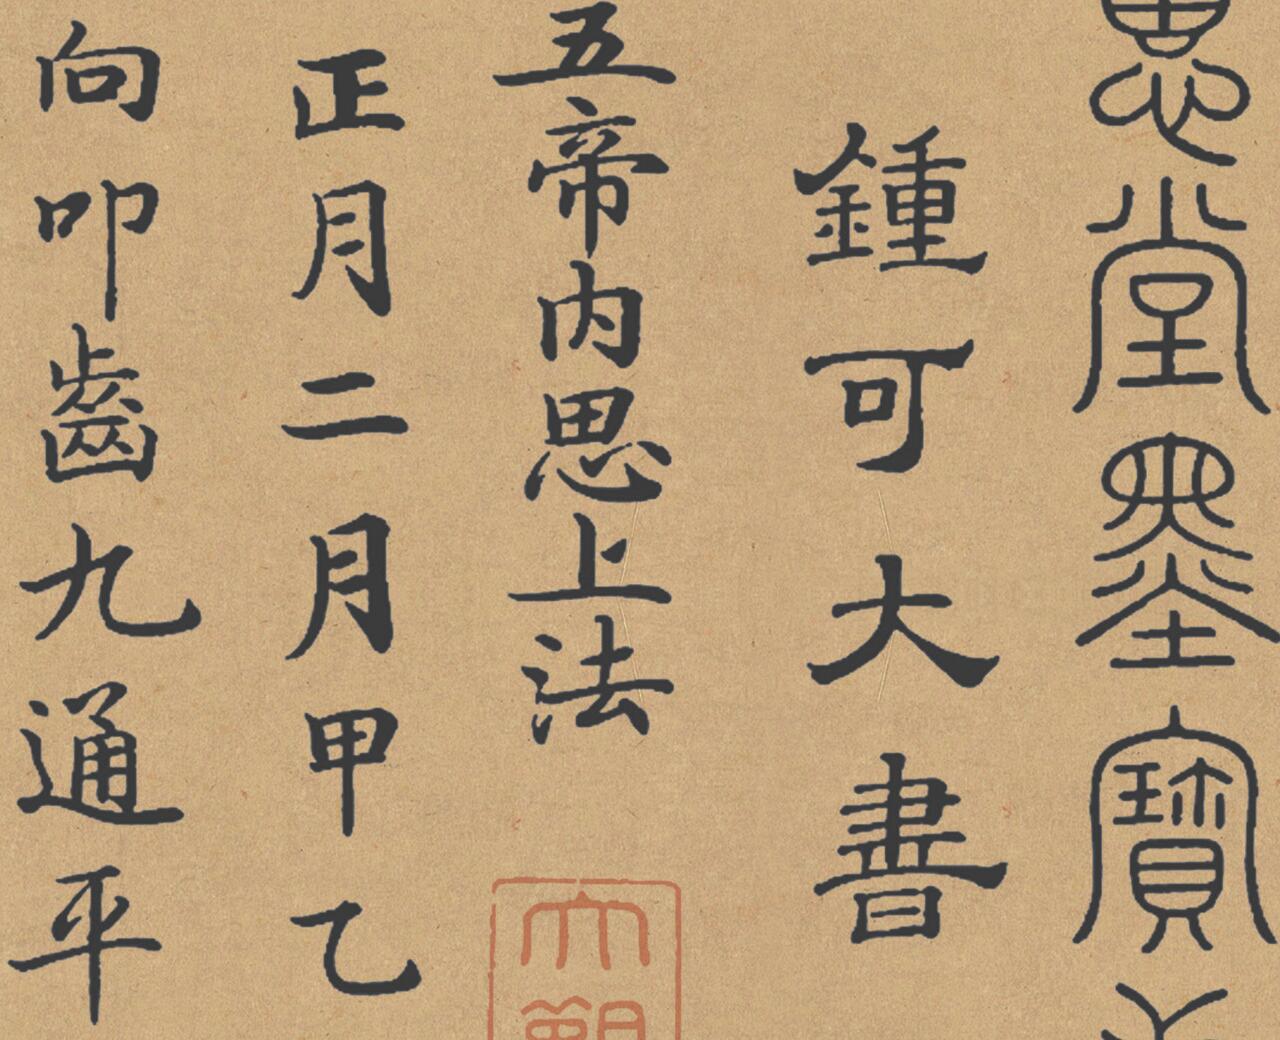 思堂墨寶
鍾可大書
五帝內思上法
正月二月甲乙
向叩齒九通平